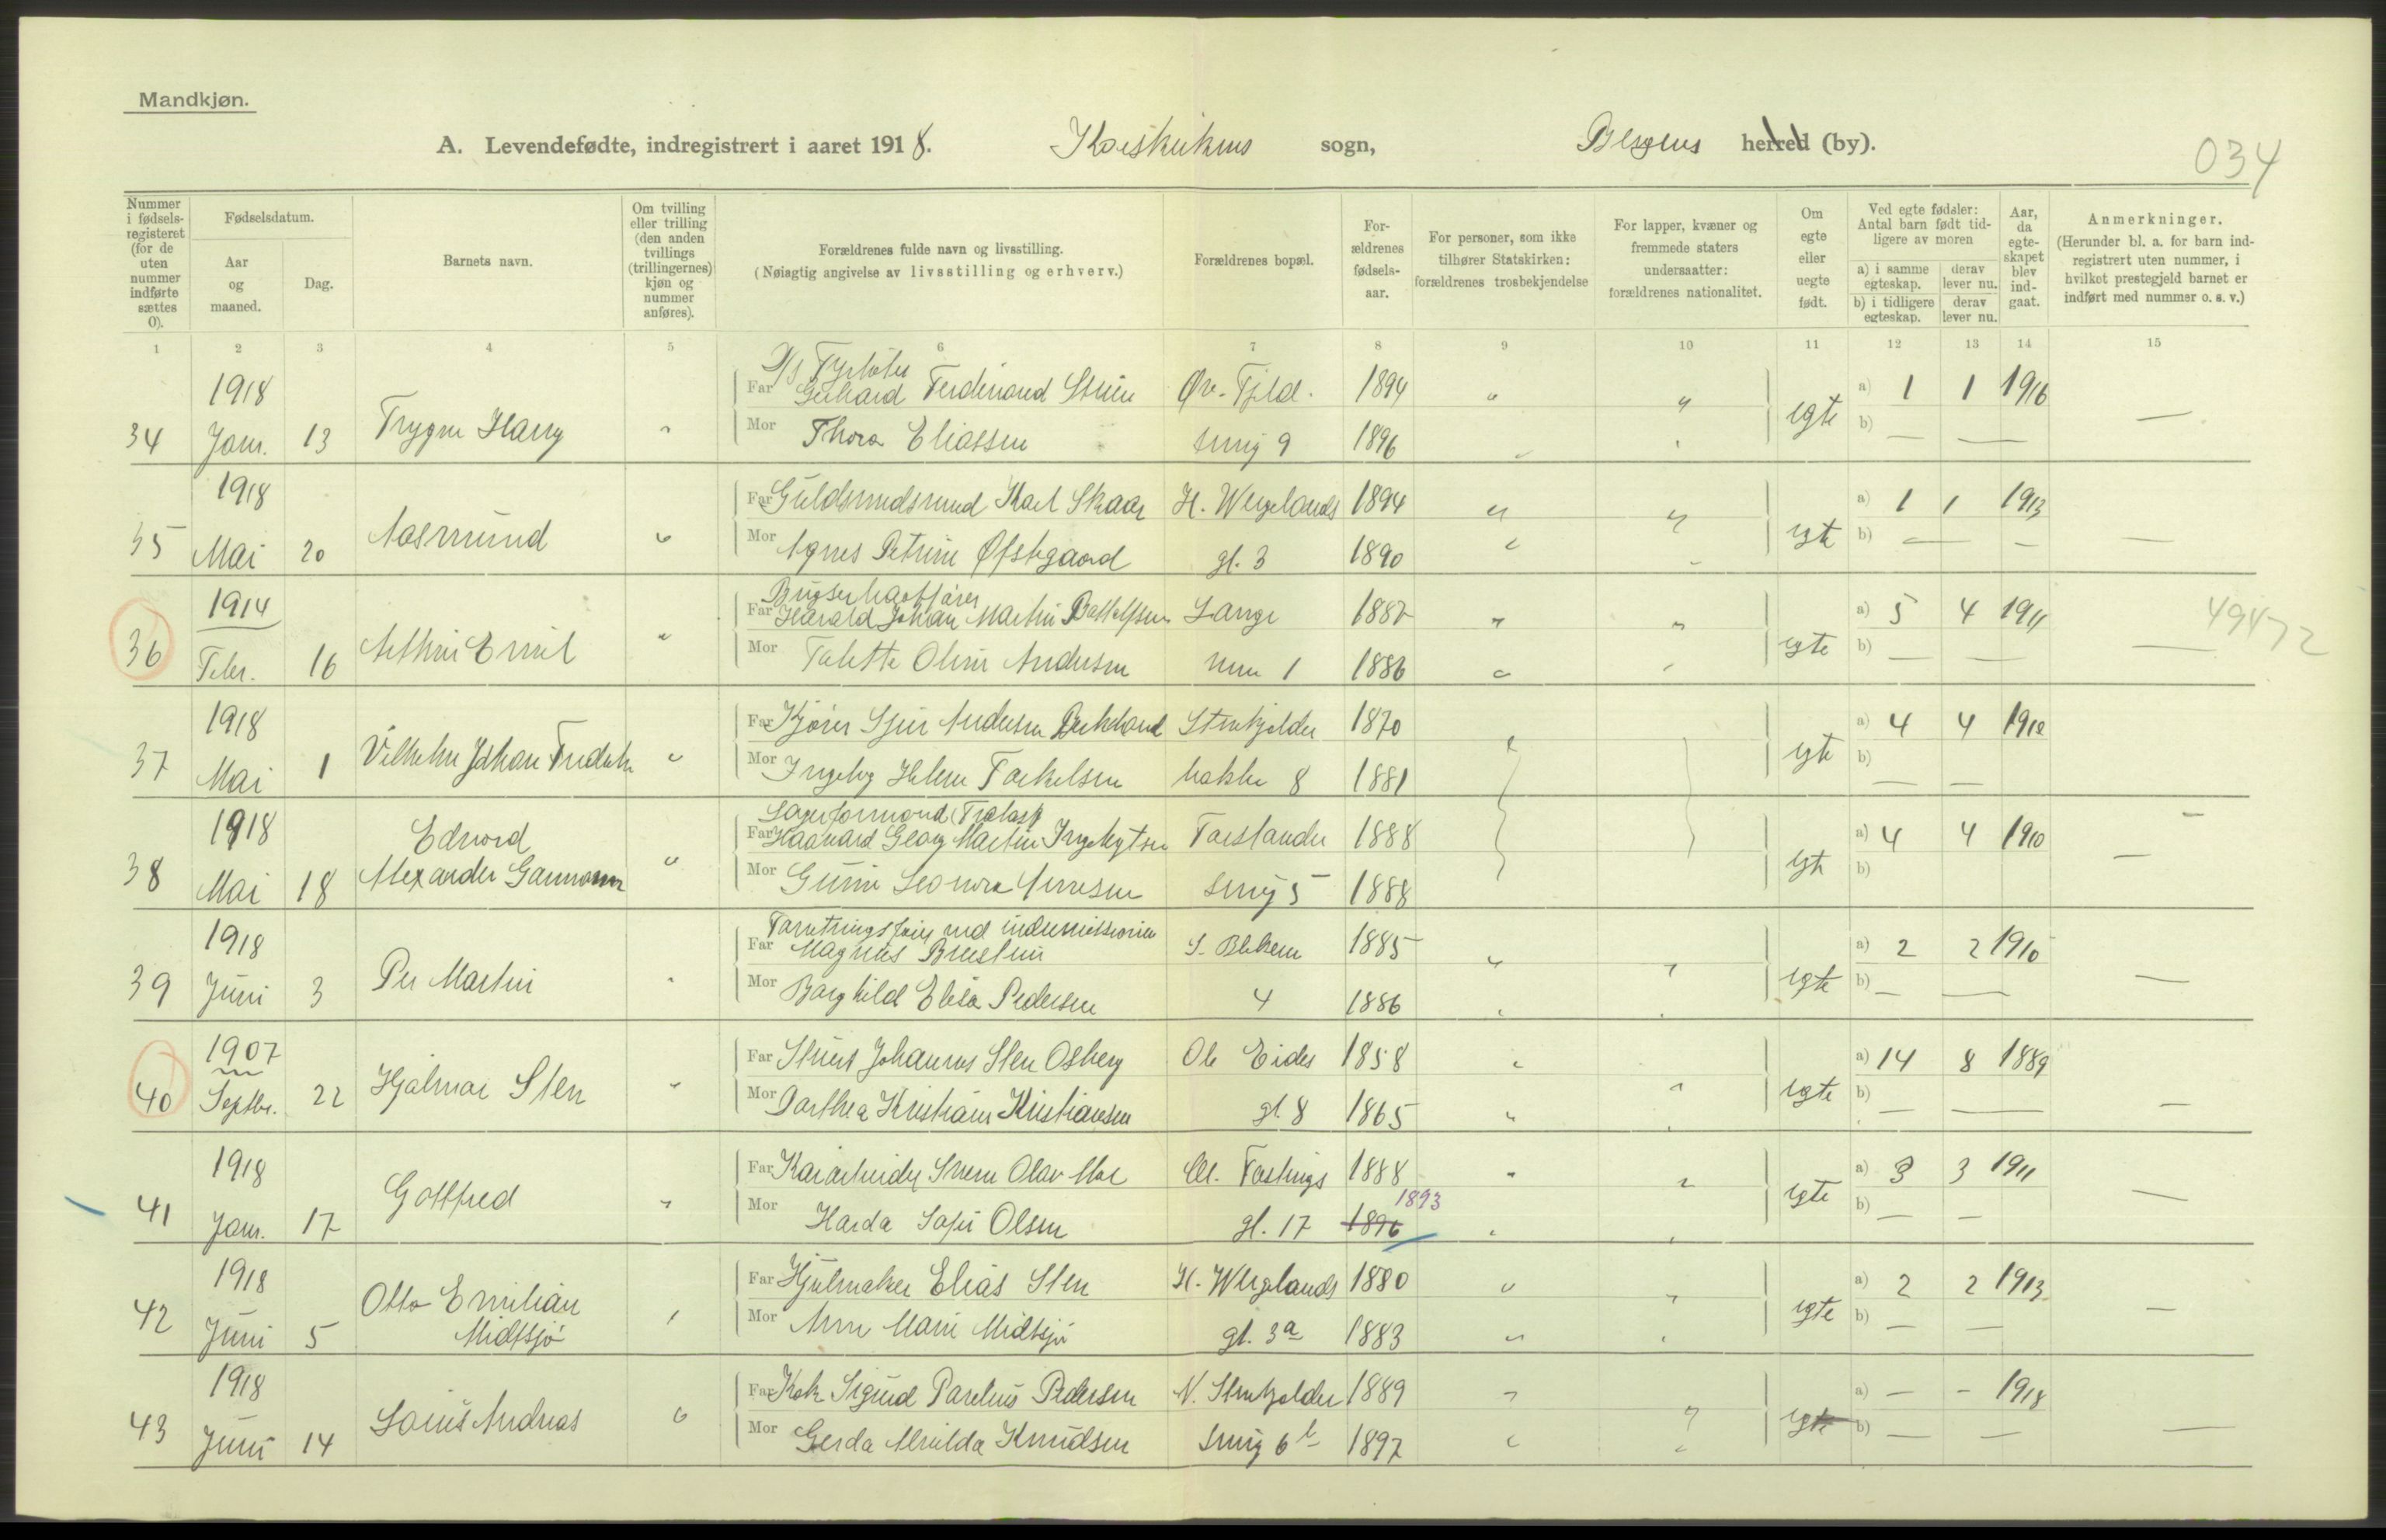 Mandkjøn.
A. Levendefødte, indregistrert i aaret 1918. Korskirkens sogn, Bergens herred (by).
034
Nummer i fødselsregisteret (for de uten nummer indførte sættes 0).
Fødselsdatum.
Aar og maaned.
Dag.
Barnets navn.
Om tvilling eller trilling (den anden tvillings (trillingernes) kjøn og nummer anføres).
Forældrenes fulde navn og livsstilling.
(Nøiagtig angivelse av livsstilling og erhverv.)
Forældrenes bopæl.
Forældrenes fødselsaar.
For personer, som ikke tilhører Statskirken: forældrenes trosbekjendelse
For lapper, kvæner og fremmede staters undersaatter: forældrenes nationalitet.
Om egte eller uegte født.
Ved egte fødsler: Antal barn født tidligere av moren
a) i samme egteskap. derav lever nu.
b) i tidligere egteskap. derav lever nu.
Aar, da egteskapet blev indgaat.
Anmerkninger.
(Herunder bl. a. for barn indregistrert uten nummer, i hvilket prestegjeld barnet er indført med nummer o. s. v.)
1 2 3 4 5 6 7 8 9 10 11 12 13 14 15
1918 Far Gerhard Ferdinand Øv. Fjeld. 1894 " " egte a) 1 1 1916
34 Janr. 13 Trygve Harry " Mor Thora Eliassen smug 9 1896 " " b) — — —
1918 Far Guldsmedsvend Karl Skaar H. Wergelands 1894 " " egte a) 1 1 1913
35 Mai 20 Aasmund " Mor Agnes Petrine Øfstegaard gt. 3 1890 " " b) — — —
1914 Far Harald Johan Martin Lange 1887 " " egte a) 5 4 1911 49472
36 Febr. 16 Emil " Mor Oline Andersen 1 1886 " " b) — — —
1918 Far Kjører Andersen Birkeland Strekjelder 1870 egte a) 4 4 1910
37 Mai 1 Vilhelm Johan Fredrik " Mor Ingeborg Helene Torkelsen bakke 8 1881 b) — —
1918 Edvard Far Haavard Georg Martin Ingebrigtsen Forstander 1888 egte a) 4 4 1910 —
38 Mai 18 Alexander " Mor Leonora smug 5 1888 b) —
1918 Far Magnus 1885 " " egte a) 2 2 1910
39 Juni 3 Per Martin " Mor Borghild Elisa Pedersen 4 1886 " " b) — — —
1907 Far Johannes Sten Osberg Ole Eides 1858 " " egte a) 14 8 1889
40 Septbr. 22 Hjalmar Sten " Mor Dorthea Kristiane Kristiansen gt. 8 1865 " " b) — — —
1918 Far Kaiarbeider Sverre Olav Cl. Fastings 1888 " " egte a) 3 3 1911
1893
41 Janr. 17 Gottfred " Mor Harda Sofie Olsen gt. 17 1896 " " b) — — —
1918 Far Hjulmaker Elias Sten H. Wergelands 1880 " " egte a) 2 2 1913
42 Juni 5 Otto Emilian Midtsjø " Mor Anne Marie Midtsjø gt. 3a 1883 " " b) — — —
1918 Far Kok Sigurd Parelius Pedersen N. Strekjelder 1889 " " egte a) — — 1918
43 Juni 14 Louis Andreas " Mor Gerda Alvilda Knudsen smug 6b 1897 " " b) — — —